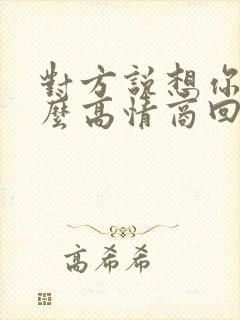 對方說想你
麼高情商回
高希希